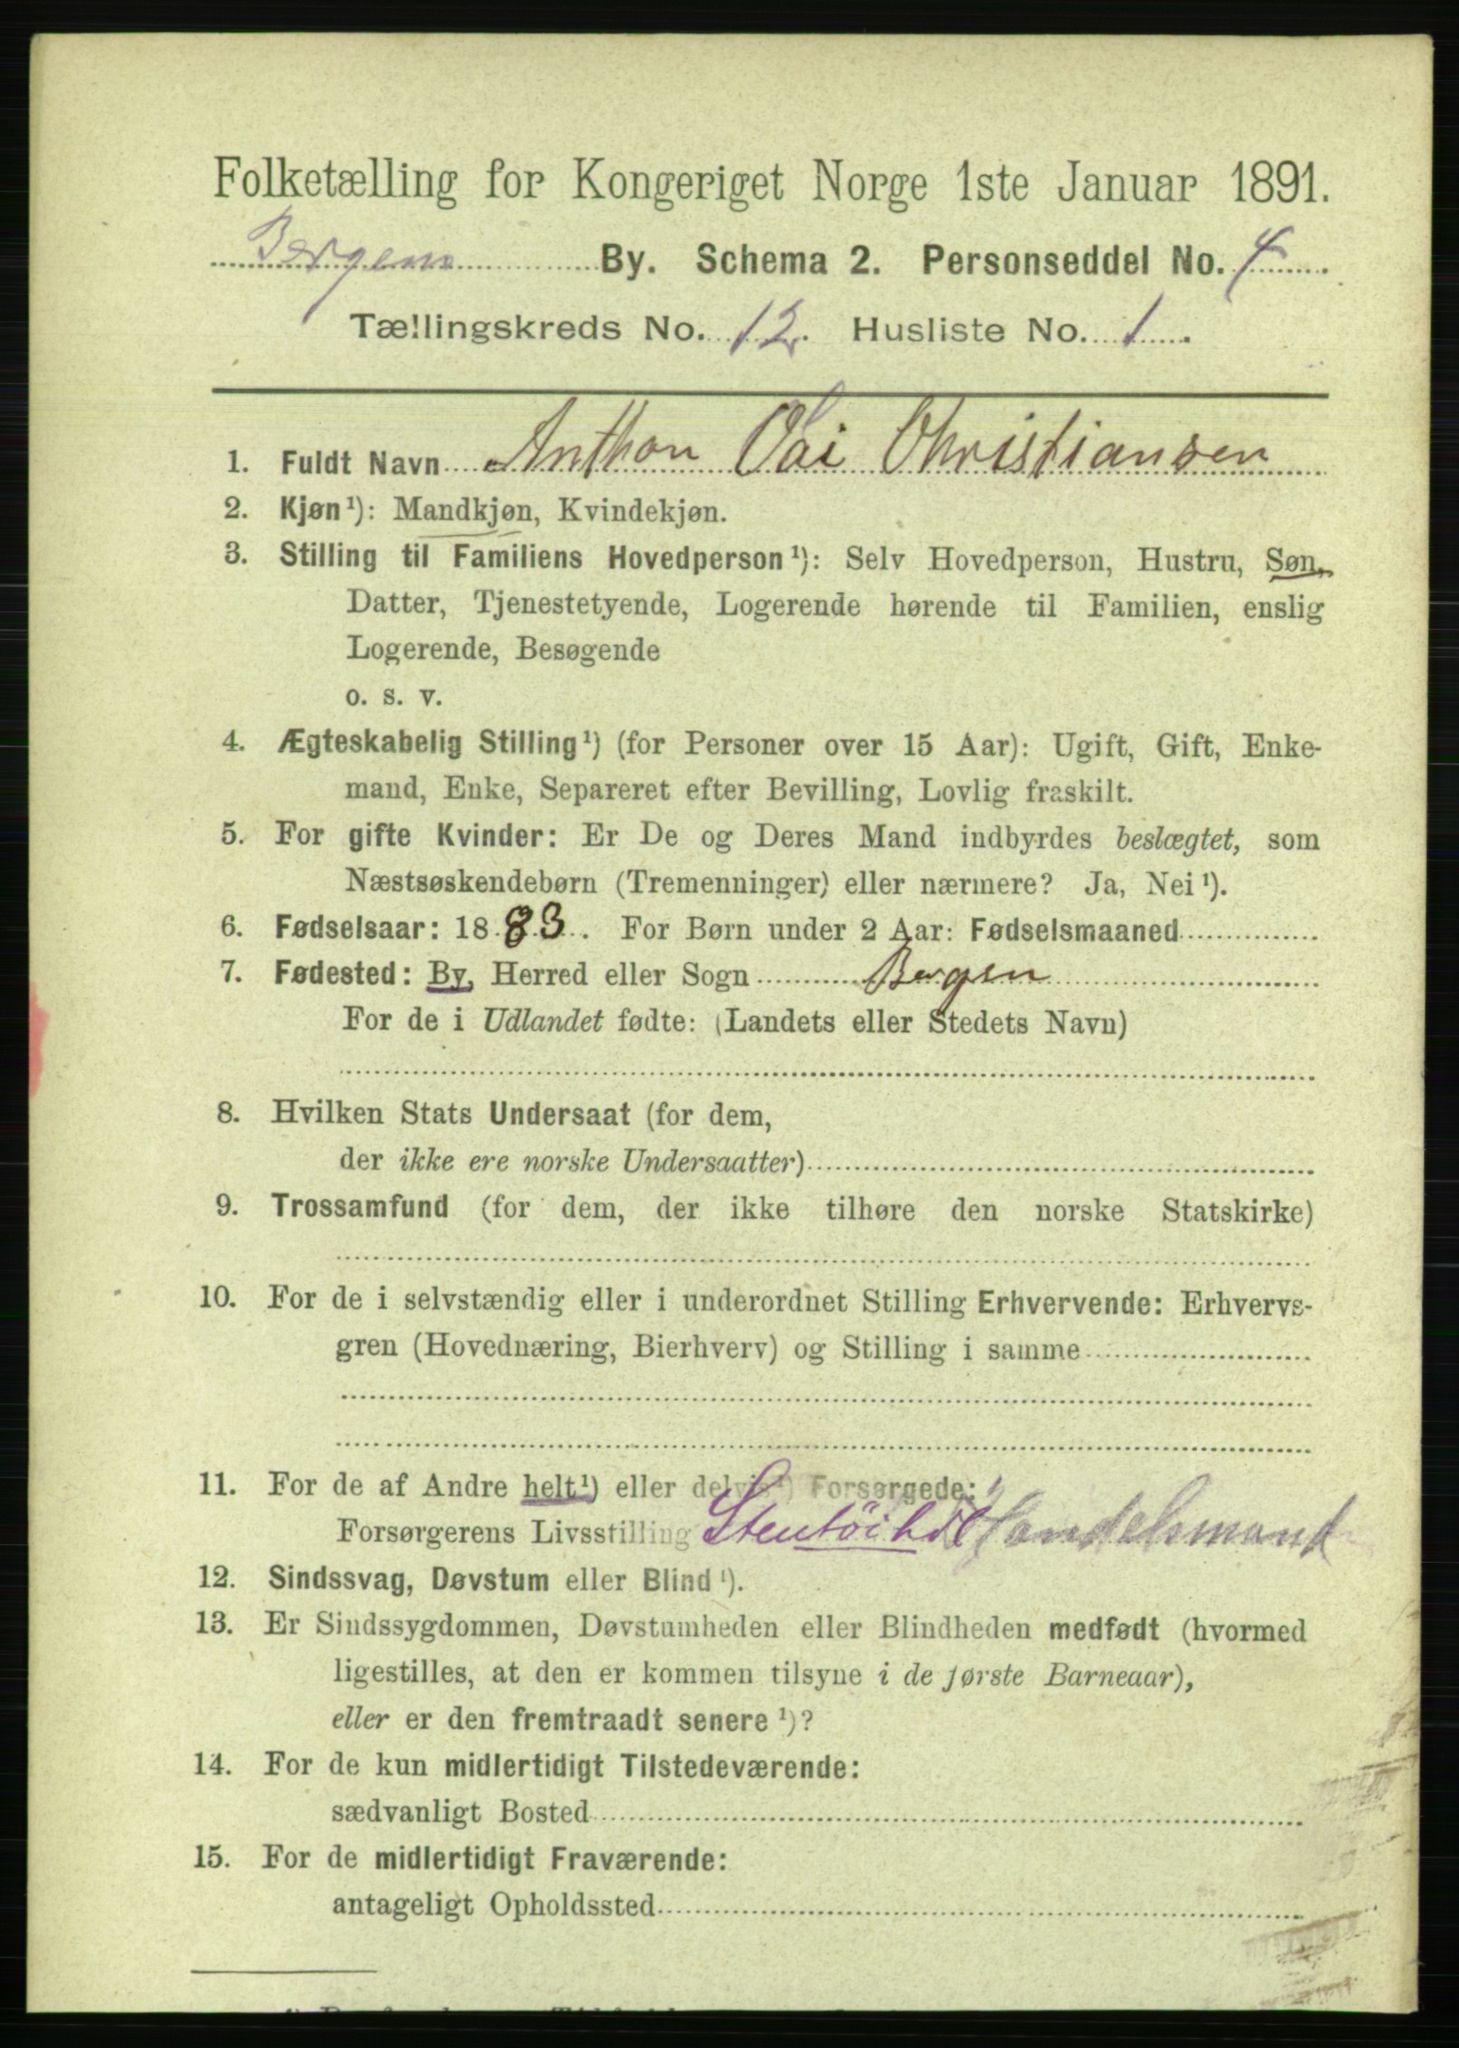 Folketælling for Kongeriget Norge 1ste Januar 1891.
Bergens By. Schema 2. Personseddel No. 4.
Tællingskreds No. 12. Husliste No. 1.
1. Fuldt Navn Anthon Olai Christiansen
2. Kjøn¹): Mandkjøn, Kvindekjøn.
3. Stilling til Familiens Hovedperson¹): Selv Hovedperson, Hustru, Søn,
Datter, Tjenestetyende, Logerende hørende til Familien, enslig
Logerende, Besøgende
o. s. v.
4. Ægteskabelig Stilling¹) (for Personer over 15 Aar): Ugift, Gift, Enke-
mand, Enke, Separeret efter Bevilling, Lovlig fraskilt.
5. For gifte Kvinder: Er De og Deres Mand indbyrdes beslægtet, som
Næstsøskendebørn (Tremenninger) eller nærmere? Ja, Nei¹).
6. Fødselsaar: 1883. For Børn under 2 Aar: Fødselsmaaned
7. Fødested: By, Herred eller Sogn Bergen
For de i Udlandet fødte: (Landets eller Stedets Navn)
8. Hvilken Stats Undersaat (for dem,
der ikke ere norske Undersaatter)
9. Trossamfund (for dem, der ikke tilhøre den norske Statskirke)
10. For de i selvstændig eller i underordnet Stilling Erhvervende: Erhvervs-
gren (Hovednæring, Bierhverv) og Stilling i samme
11. For de af Andre helt¹) eller delvis¹) Forsørgede:
Forsørgerens Livsstilling Handelsmand
12. Sindssvag, Døvstum eller Blind¹).
13. Er Sindssygdommen, Døvstumheden eller Blindheden medfødt (hvormed
ligestilles, at den er kommen tilsyne i de første Barneaar),
eller er den fremtraadt senere¹)?
14. For de kun midlertidigt Tilstedeværende:
sædvanligt Bosted
15. For de midlertidigt Fraværende:
antageligt Opholdssted